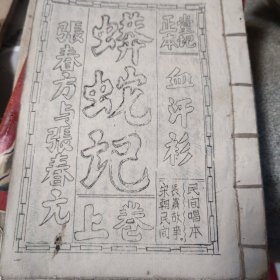 正本
血汗衫
民间唱本
長篇故事
宋朝民间
蟒蛇記
上卷
張春方与張春元